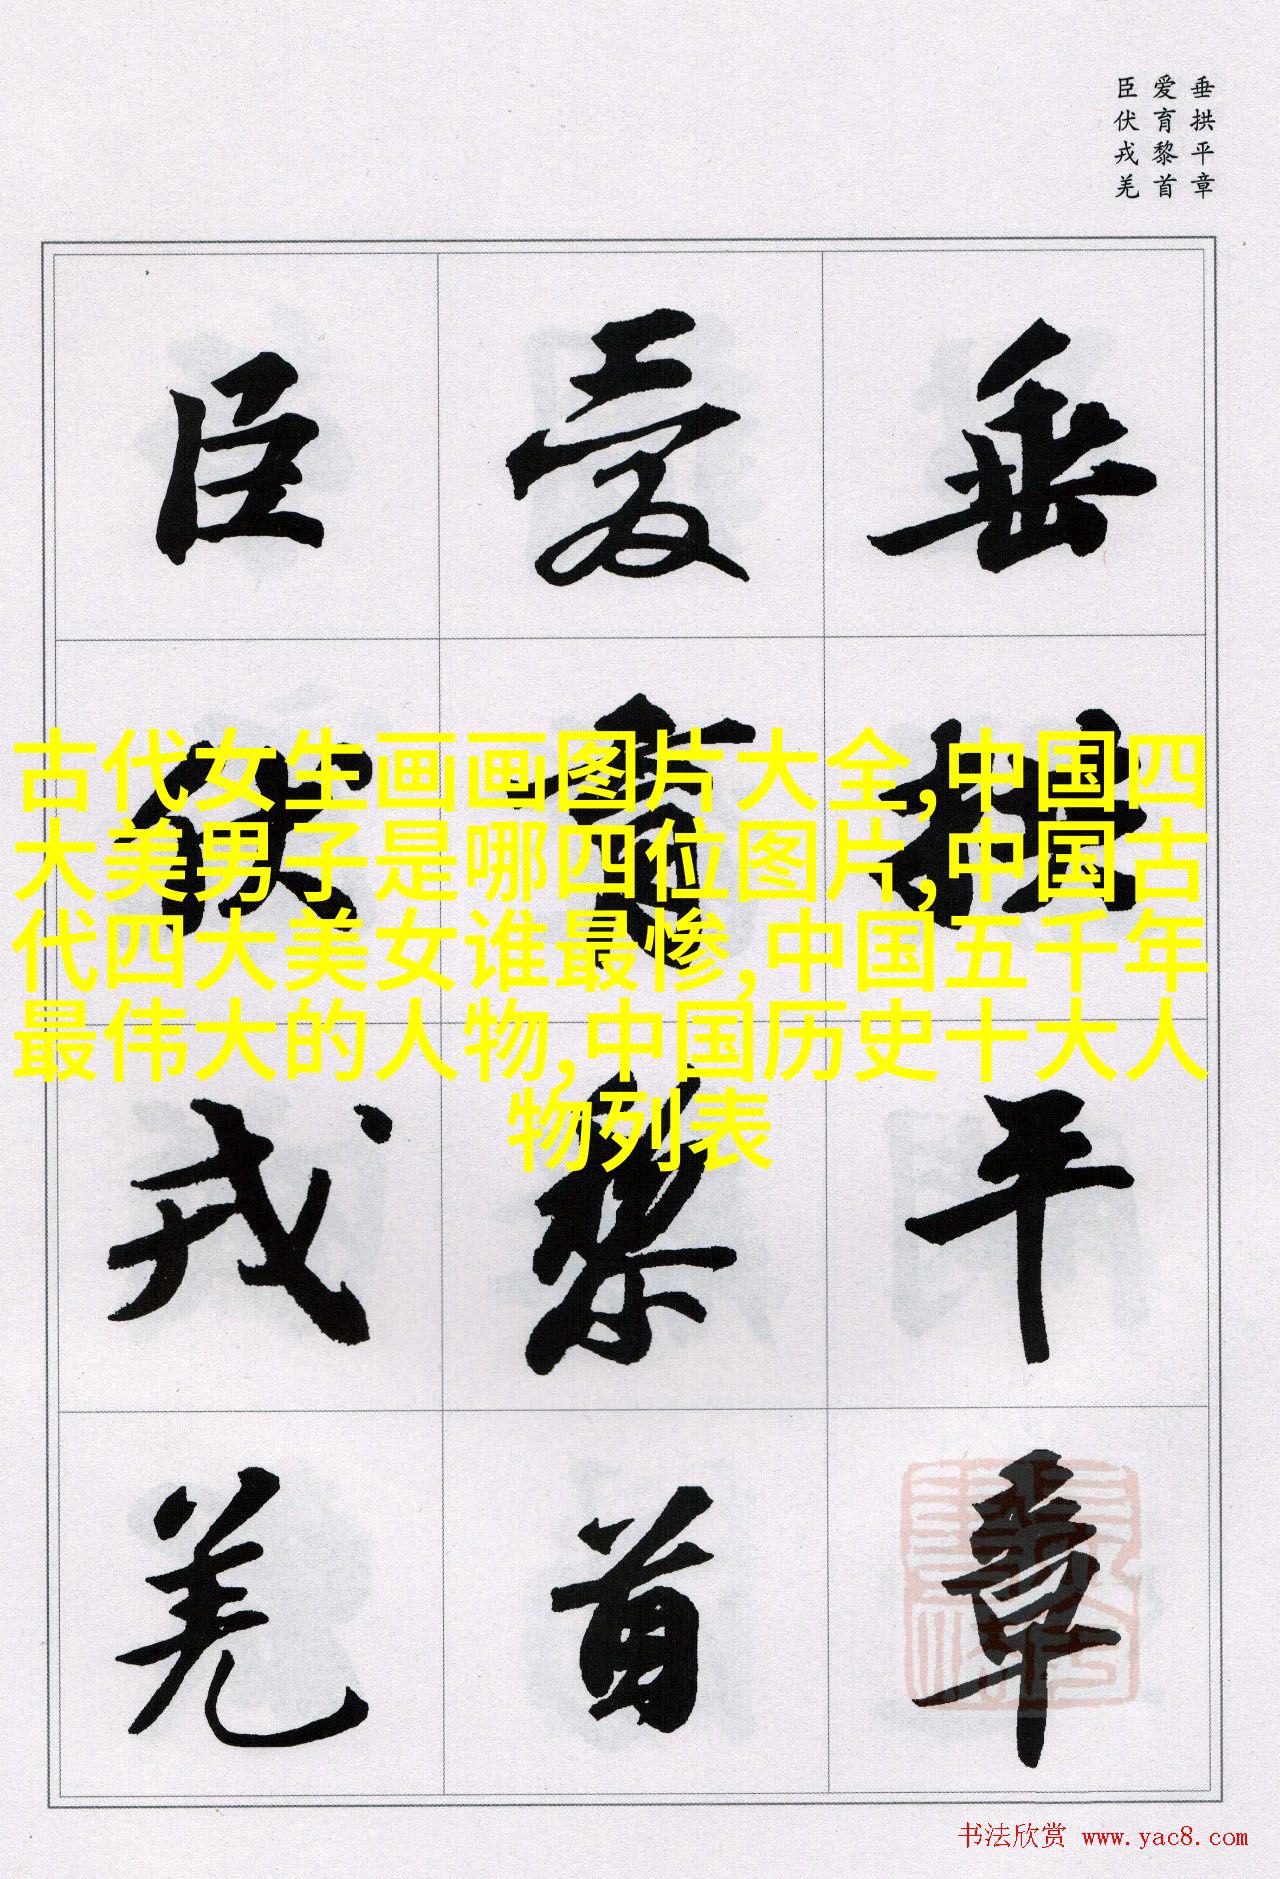 垂拱平章
爱育黎首
臣伏戎羌
垂拱平章
爱育黎首
臣伏戎羌
古代女生画画图片大全,中国四
大美男子是哪四位图片,中国古
代四大美女谁最惨,中国五千年
最伟大的人物,中国历史十大人
物列表
书法欣赏 www.yac8.com